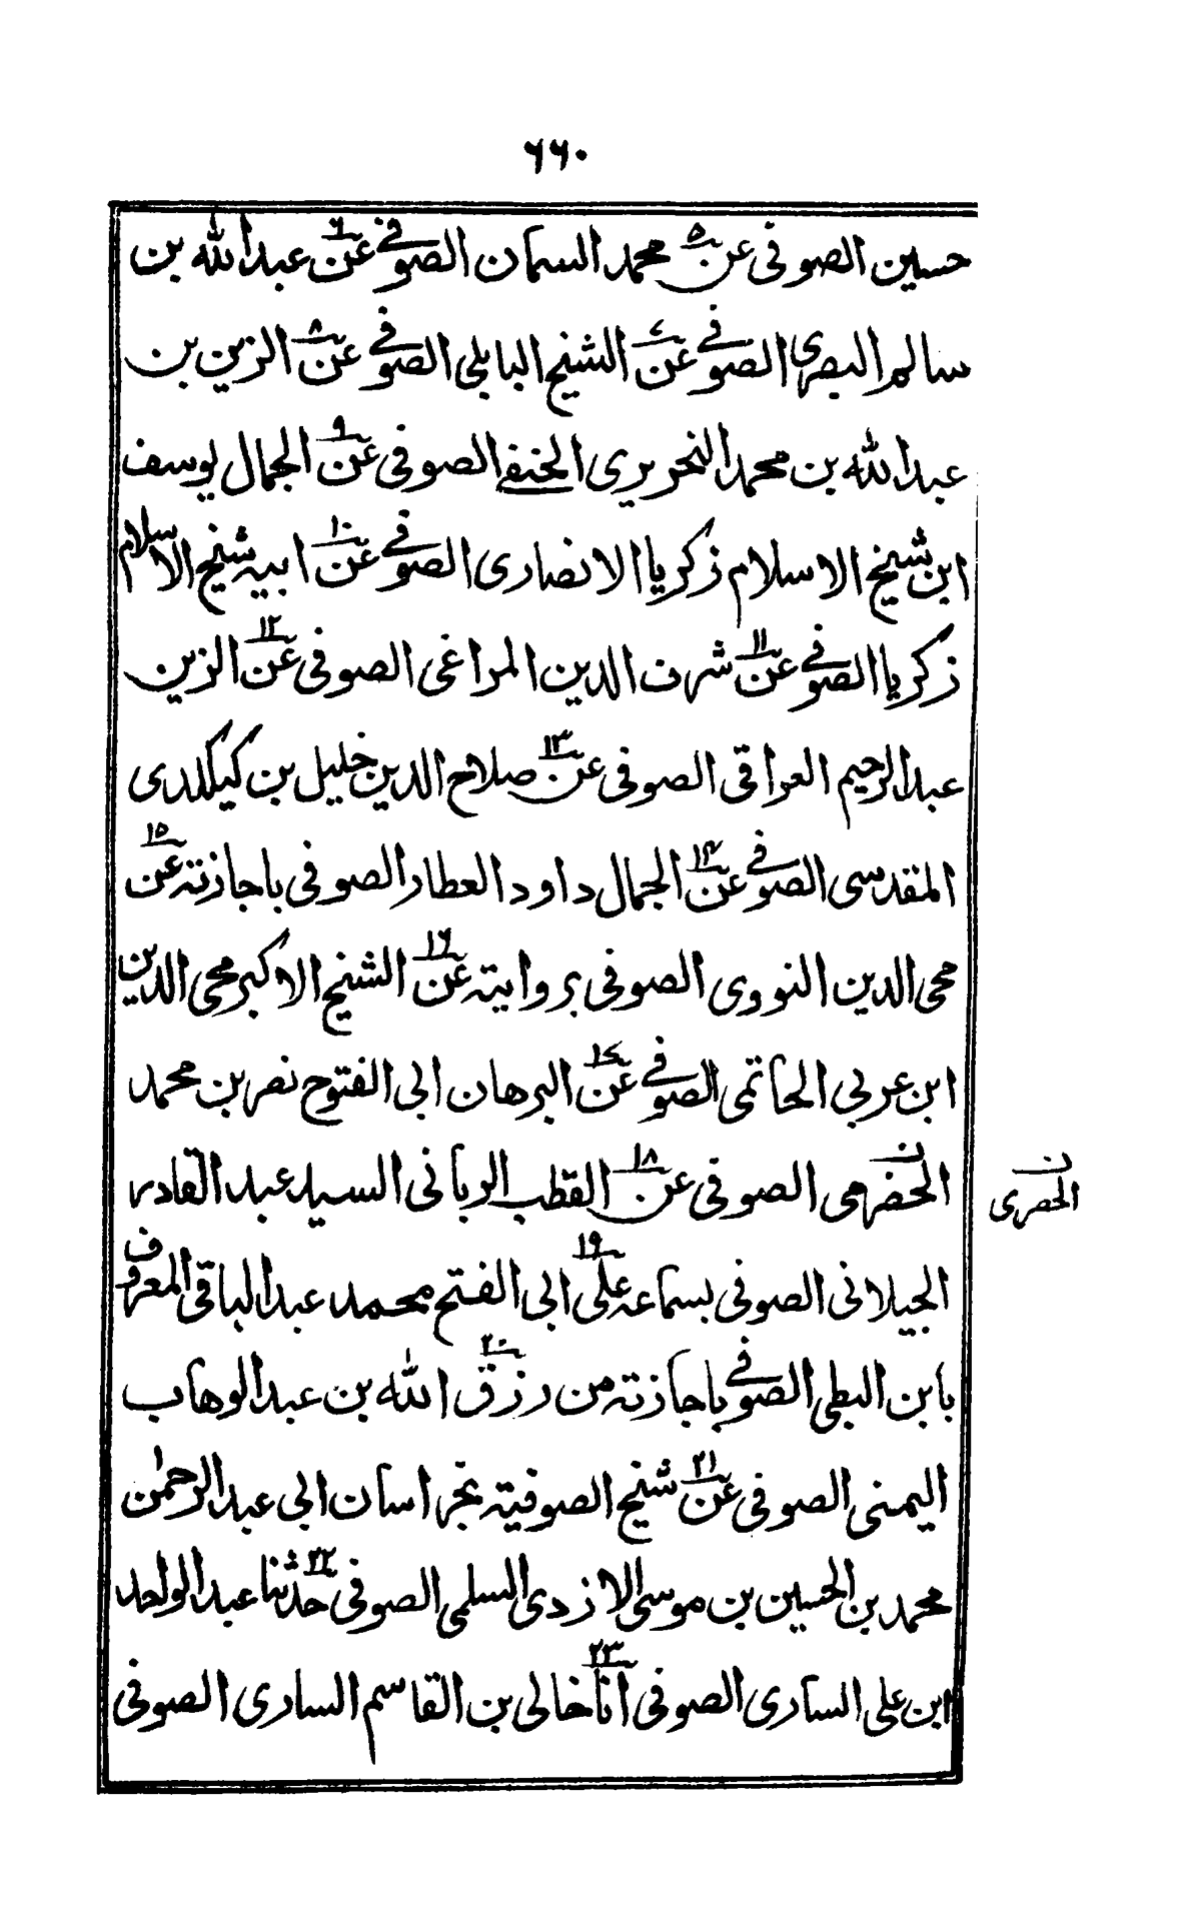 ٦٦٠
حسین الصوفی عن ٥ محمد السمان الصوفی عن ٦ عبدالله بن
سالم البصری الصوفی عن ٧ الشیخ البابلی الصوفی عن ٨ الزین بن
عبدالله بن محمد النحریری الحنفی الصوفی عن ٩ الجمال یوسف
ابن شیخ الاسلام زکریا الانصاری الصوفی عن ١٠ ابیه شیخ الاسلام
زکریا الصوفی عن ١١ شرف الدین المراغی الصوفی عن ١٢ الزین
عبدالرحیم العراقی الصوفی عن ١٣ صلاح الدین خلیل بن کیکلدی
المقدسی الصوفی عن ١٤ الجمال داود العطار الصوفی باجازته عن ١٥
محی الدین النووی الصوفی بروایته عن ١٦ الشیخ الاکبر محی الدین
ابن عربی الحاتمی الصوفی عن ١٧ البرهان ابی الفتوح نصر بن محمد
الحضرمی الصوفی عن ١٨ القطب الربانی السید عبد القادر
ن الحصری
الجیلانی الصوفی بسماعه علی ١٩ ابی الفتح محمد عبدالباقی المعروف
بابن البطی الصوفی باجازته من ٢٠ رزق الله بن عبدالوهاب
الیمنی الصوفی عن ٢١ شیخ الصوفیة بخراسان ابی عبدالرحمٰن
محمد بن الحسین بن موسی الازدی السلمی الصوفی ٢٢ حدثنا عبدالواحد
ابن علی الساری الصوفی ٢٣ انا خالی بن القاسم الساری الصوفی